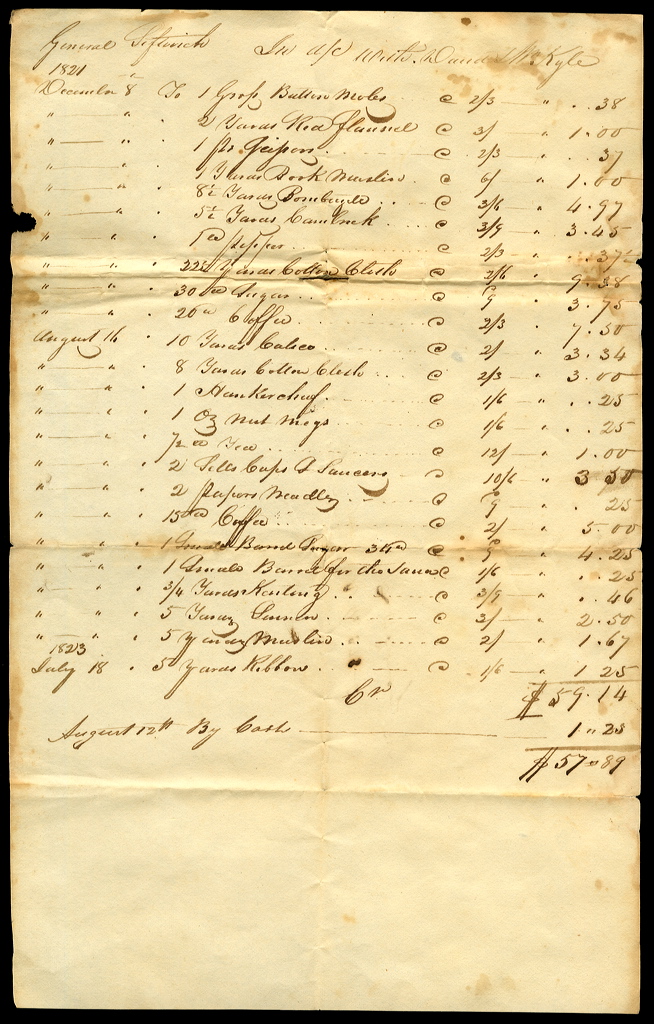 General Leftwich In a/c with David McKyle
1821
December 8 To 1 Gross Button Moles @ 2/3 " . 38
" " " 2 Yards Red flannel @ 3/ " 1.00
" " " 1 @ 2/3 " . 37
" " " 1 Yards Book Muslin @ 6/ " 1.00
" " " 8½ Yards Bombazett @ 3/6 " 4.97
" " " 5½ Yards Cambrick @ 3/9 " 3.45
" " " 1 lb pepper @ 2/3 " . 37½
" " " 22½ Yards Cotton Cloth @ 2/6 " 9.38
" " " 30 lb Sugar @ 9 " 3.75
" " " 20 lb Coffee @ 2/3 " 7.50
August 14 " 10 Yards Calico @ 2/ " 3.34
" " " 8 Yards Cotton Cloth @ 2/3 " 3.00
" " " 1 Hankerchuf @ 1/6 " . 25
" " " 1 Oz nut megs @ 1/6 " . 25
" " " ½ lb Tea @ 12/ " 1.00
" " " 2 Setts Cups & Saucers @ 10/6 " 3 50
" " " 2 papers Needles @ 9 " . 25
" " " 15 lb Coffee @ 2/ " 5.00
" " " 1 Small Barrel Sugar 34 lb @ 9 " 4.25
" " " 1 Small Barrel for the Same @ 1/6 " . 25
" " " 3/4 Yards @ 3/9 " . 46
" " " 5 Yards Linnen @ 3/ " 2.50
" " " 5 Yards Muslin @ 2/ " 1.67
1823
July 18 " 5 Yards Ribbon @ 1/6 " 1 25
Cr $ 59.14
August 12th By Cash 1 " 25
$ 57 " 89